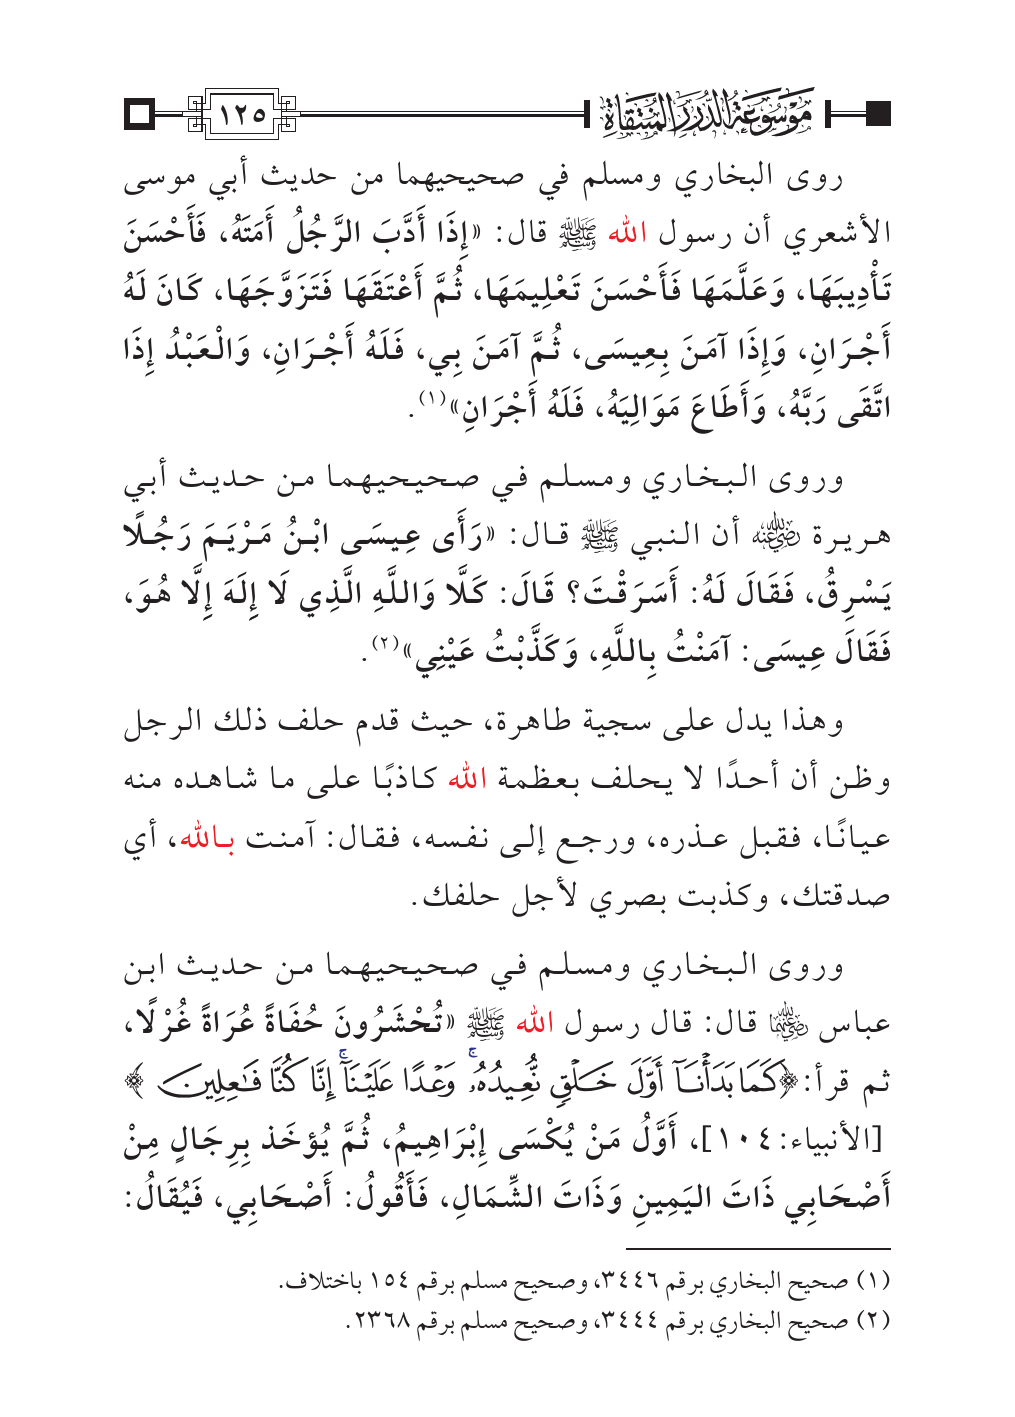 موسوعة الدرر المنتقاة ١٢٥
روى البخاري ومسلم في صحيحيهما من حديث أبي موسى
الأشعري أن رسول الله ﷺ قال: «إِذَا أَدَّبَ الرَّجُلُ أَمَتَهُ، فَأَحْسَنَ
تَأْدِيبَهَا، وَعَلَّمَهَا فَأَحْسَنَ تَعْلِيمَهَا، ثُمَّ أَعْتَقَهَا فَتَزَوَّجَهَا، كَانَ لَهُ
أَجْرَانِ، وَإِذَا آمَنَ بِعِيسَى، ثُمَّ آمَنَ بِي، فَلَهُ أَجْرَانِ، وَالْعَبْدُ إِذَا
اتَّقَى رَبَّهُ، وَأَطَاعَ مَوَالِيَهُ، فَلَهُ أَجْرَانِ»(١).
وروى البخاري ومسلم في صحيحيهما من حديث أبي
هريرة رضي الله عنه أن النبي ﷺ قال: «رَأَى عِيسَى ابْنُ مَرْيَمَ رَجُلًا
يَسْرِقُ، فَقَالَ لَهُ: أَسَرَقْتَ؟ قَالَ: كَلَّا وَاللَّهِ الَّذِي لَا إِلَهَ إِلَّا هُوَ،
فَقَالَ عِيسَى: آمَنْتُ بِاللَّهِ، وَكَذَّبْتُ عَيْنِي»(٢).
وهذا يدل على سجية طاهرة، حيث قدم حلف ذلك الرجل
وظن أن أحدًا لا يحلف بعظمة الله كاذبًا على ما شاهده منه
عيانًا، فقبل عذره، ورجع إلى نفسه، فقال: آمنت بالله، أي
صدقتك، وكذبت بصري لأجل حلفك.
وروى البخاري ومسلم في صحيحيهما من حديث ابن
عباس رضي الله عنهما قال: قال رسول الله ﷺ «تُحْشَرُونَ حُفَاةً عُرَاةً غُرْلًا،
ثم قرأ: ﴿كَمَا بَدَأْنَآ أَوَّلَ خَلْقٍ نُّعِيدُهُۥۚ وَعْدًا عَلَيْنَآۚ إِنَّا كُنَّا فَـٰعِلِينَ﴾
[الأنبياء: ١٠٤]، أَوَّلُ مَنْ يُكْسَى إِبْرَاهِيمُ، ثُمَّ يُؤخَذ بِرِجَالٍ مِنْ
أَصْحَابِي ذَاتَ اليَمِينِ وَذَاتَ الشِّمَالِ، فَأَقُولُ: أَصْحَابِي، فَيُقَالُ:
(١) صحيح البخاري برقم ٣٤٤٦، وصحيح مسلم برقم ١٥٤ باختلاف.
(٢) صحيح البخاري برقم ٣٤٤٤، وصحيح مسلم برقم ٢٣٦٨.